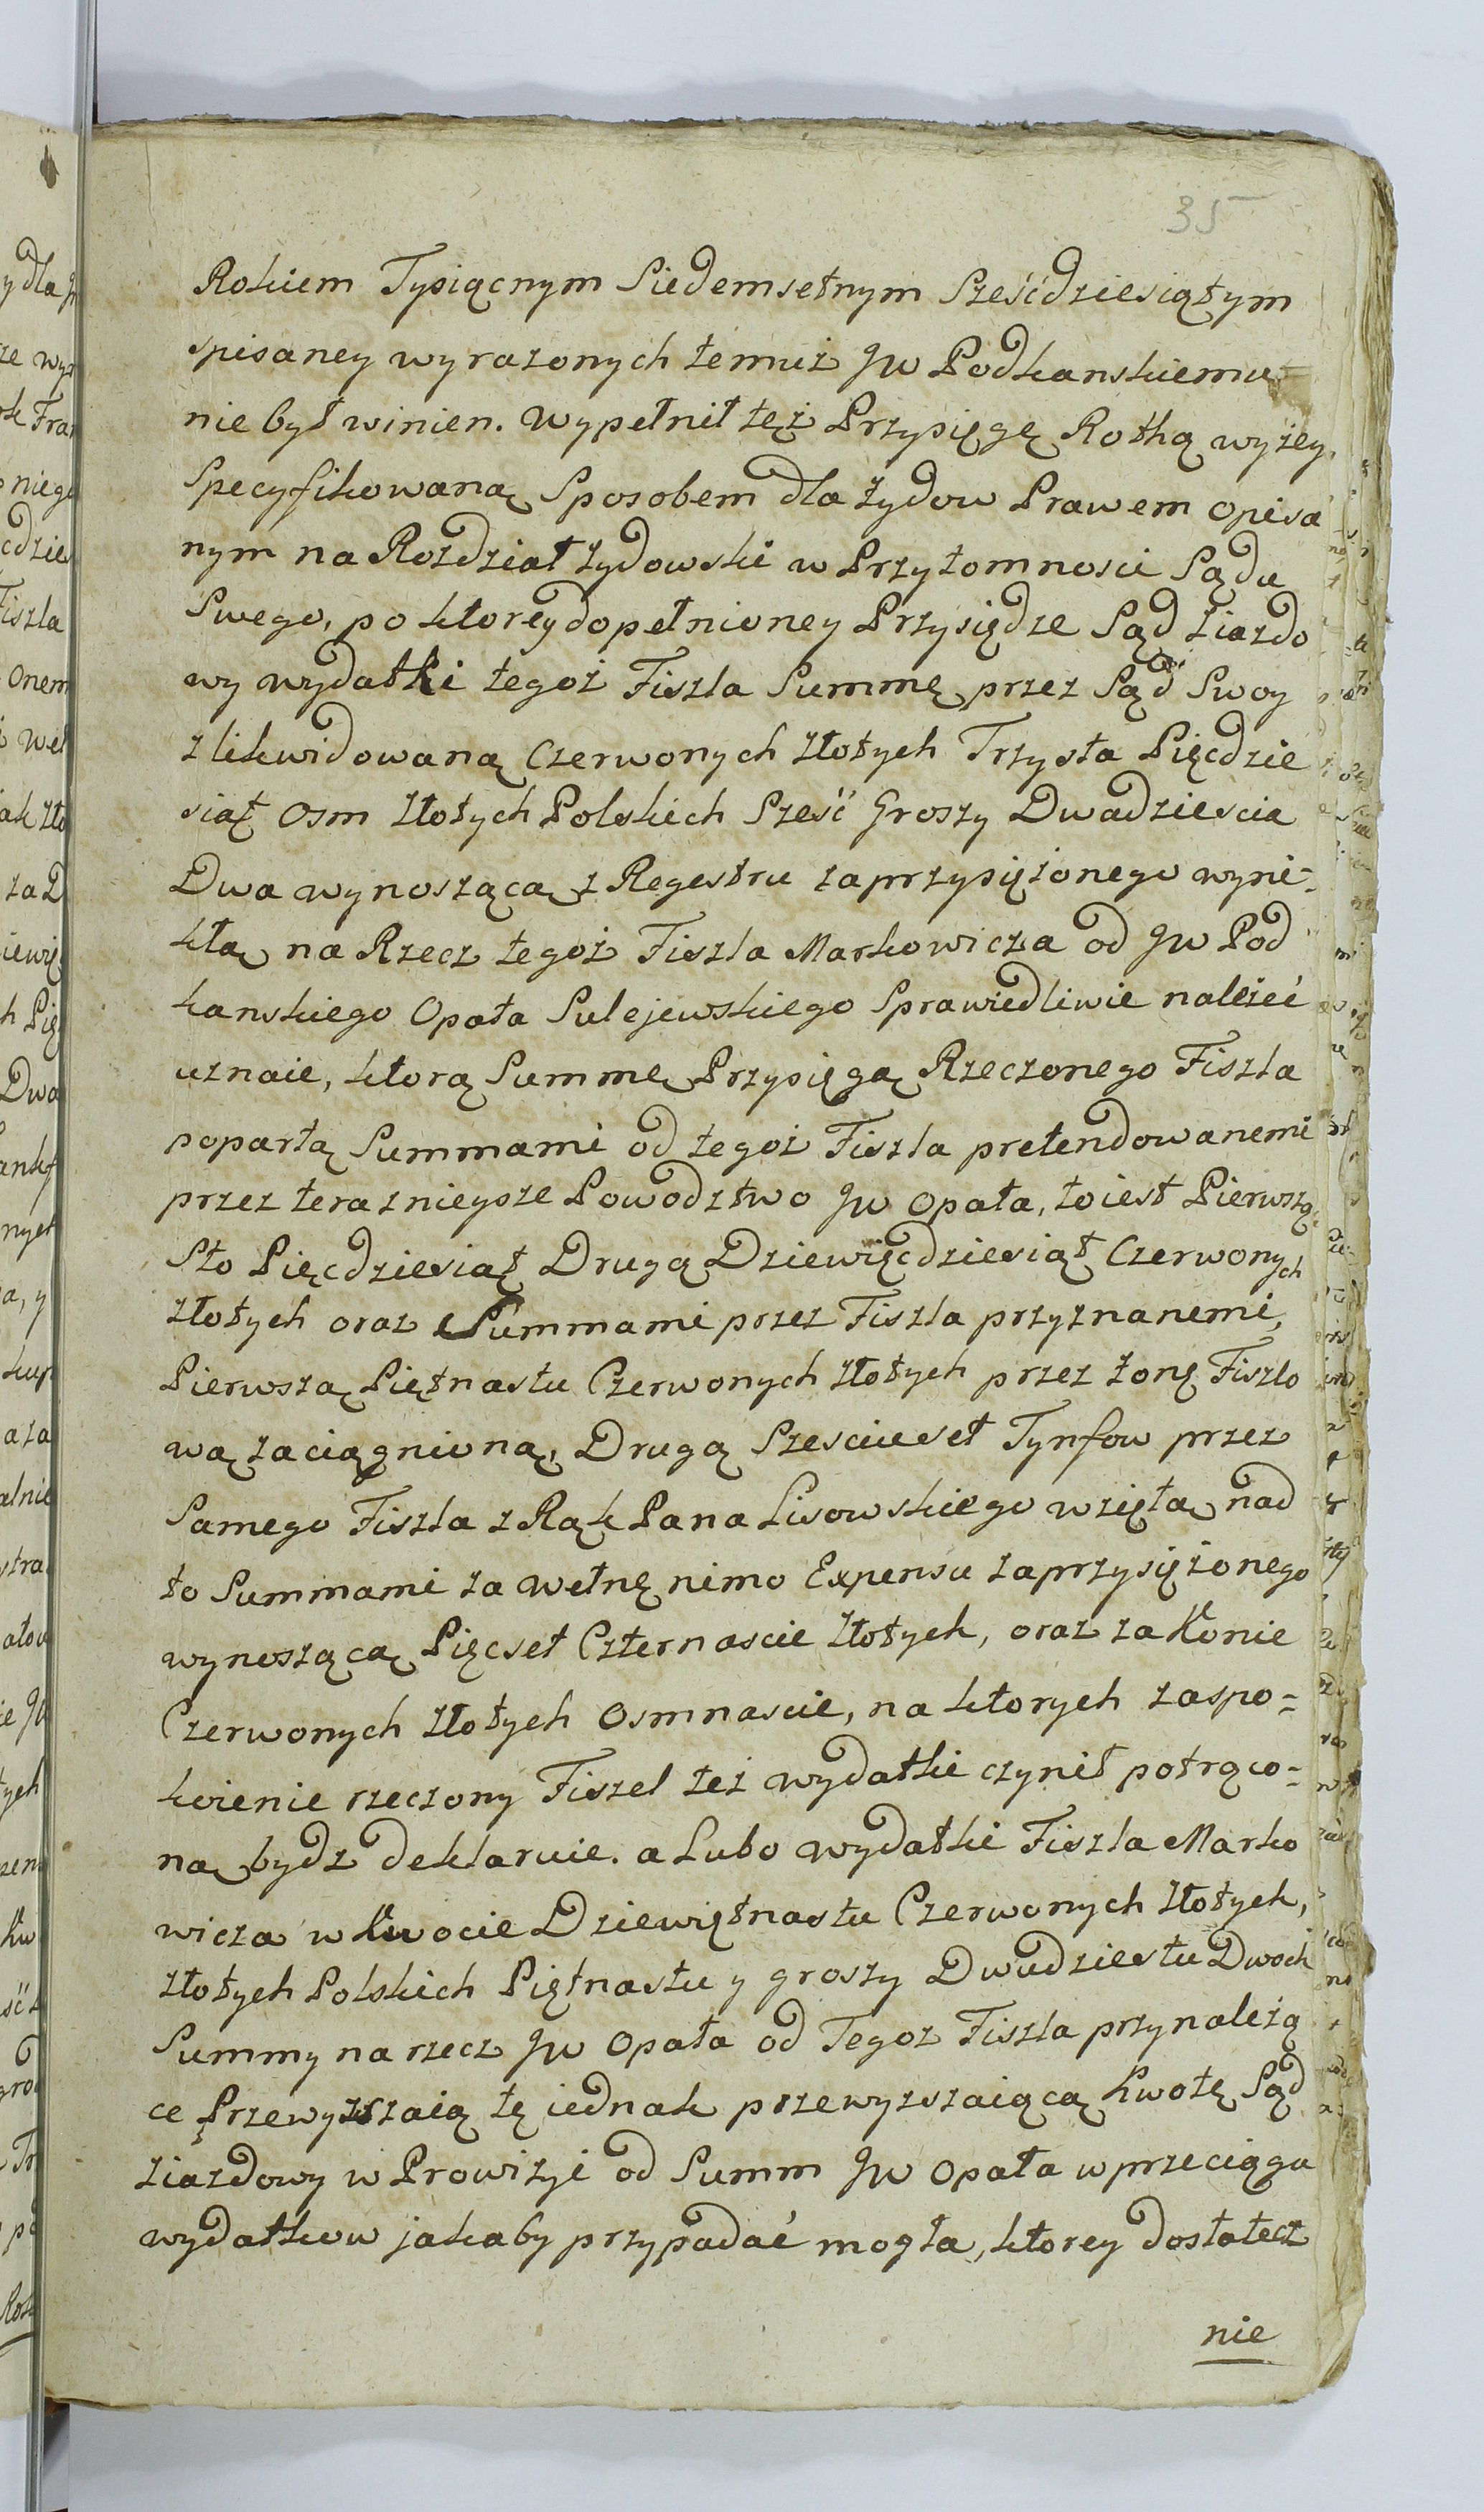 35
Rokiem Tysiącnym Siedemsetnym Sześćdziesiątym
spisaney wyrazonych temuż JW Podkanskiemu
nie był winien. Wypełnił też Przysięgę Rothą wyżey
Specyfikowaną Sposobem dla Żydow Prawem opisa
nym na Rozdział Żydowski w Przytomnosci Sądu
Swego, po ktorey dopełnioney Przysiędze Sąd Ziazdo
wy wydatki tegoż Fiszla Summę przez Sąd Swoy
zlikwidowaną Czerwonych Złotych Trzysta Pięcdzie
siąt Osm Złotych Polskich Sześć Groszy Dwadziescia
Dwa wynoszącą z Regestru zaprzysięzonego wyni-
kłą na Rzecz tegoż Fiszla Markowicza od JW Pod
kanskiego Opata Sulejewskiego Sprawiedliwie należeć
uznaie, ktorą Summę Przysięgą Rzeczonego Fiszla
popartą Summami od tegoż Fiszla pretendowanemi
przez teraznieysze Powodztwo JW Opata, toiest Pierwszą
Sto Pięcdziesiąt Drugą Dziewięcdziesiąt Czerwonych
złotych oraz Summami przez Fiszla przyznanemi,
Pierwszą Piętnastu Czerwonych Złotych przez Żonę Fiszlo
wą zaciągnioną, Drugą Szesciuset Tynfow przez
Samego Fiszla z Rąk Pana Lisowskiego wziętą nad
to Summami za wełnę nimo Expensu zaprzysięzonego
wynoszącą Pięcset Czternascie Złotych, oraz za Konie
Czerwonych Złotych Osmnascie, na ktorych zaspo=
koienie rzeczony Fiszel też wydatki czynił potrąco=
ną bydz deklaruie. a Lubo wydatki Fiszla Marko
wicza w Kwocie Dziewiętnastu Czerwonych Złotych,
złotych Polskich Piętnastu y groszy Dwudziestu Dwoch
Summy na rzecz JW Opata od Tegoz Fiszla przynależą
ce Przewyzszaią tę iednak przewyzszaiącą Kwotę Sąd
ziazdowy w Prowizyi od Summ JW Opata w przeciągu
wydatkow jakaby przypadać mogła, ktorey dostatecz
nie